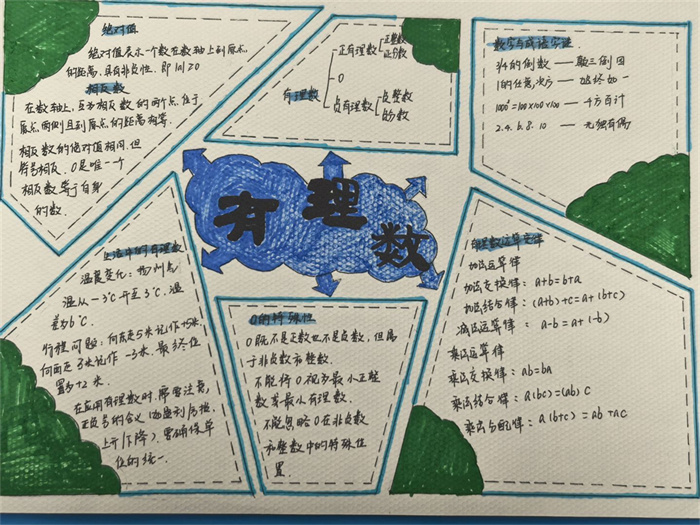 绝对值
绝对值表示一个数在数轴上到原点
的距离,具有非负性,即|a|≥0
相反数
在数轴上,互为相反数的两个点,位于
原点两侧且到原点的距离相等.
相反数的绝对值相同,但
符号相反,0是唯一一个
相反数等于自身
的数.
有理数
正有理数
正整数
正分数
0
负有理数
负整数
负分数
数字与成语字谜
3/4的倒数——颠三倒四
1的任意次方——始终如一
100²=100×100×100——千方百计
2.4.6.8.10——无独有偶
有理数
生活中的有理数
温度变化:
温从-3℃升至3℃,温
差为6℃.
行程问题:向东走5米记作+5米
向西走3米记作-3米,最终位
置为+2米.
在应用有理数时,需要注意,
正负号的含义(如盈利/亏损,
上升/下降),要确保单
位的统一.
0的特殊性
0既不是正数也不是负数,但属
于非负数和整数.
不能将0视为最小正整
数或最小有理数.
不能忽略0在非负数
和整数中的特殊位
置.
有理数运算定律
加法运算律
加法交换律:a+b=b+a
加法结合律:(a+b)+c=a+(b+c)
减法运算律:a-b=a+(-b)
乘法运算律
乘法交换律:ab=ba
乘法结合律:a(bc)=(ab)c
乘法分配律:a(b+c)=ab+ac